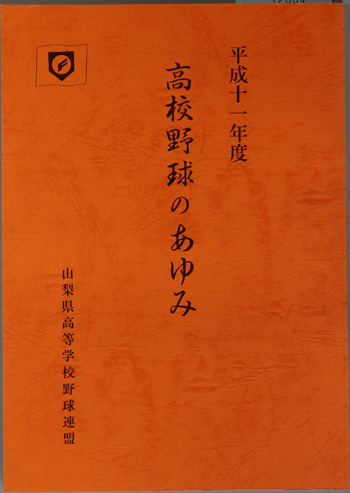 平成十一年度
高校野球のあゆみ
山梨県高等学校野球連盟